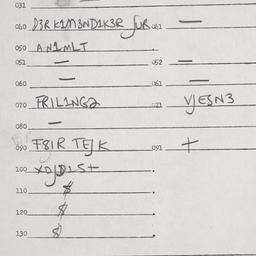 031
040 D3R K1M3ND1K3R JUR 041 —
050 AN1MLT
051 — 052 —
060 — 061 —
070 FRIL1NG2 071 VJESN3
080 —
090 F8IR TEJK 091 +
100 XDJD1S+
110 $
120 $
130 $